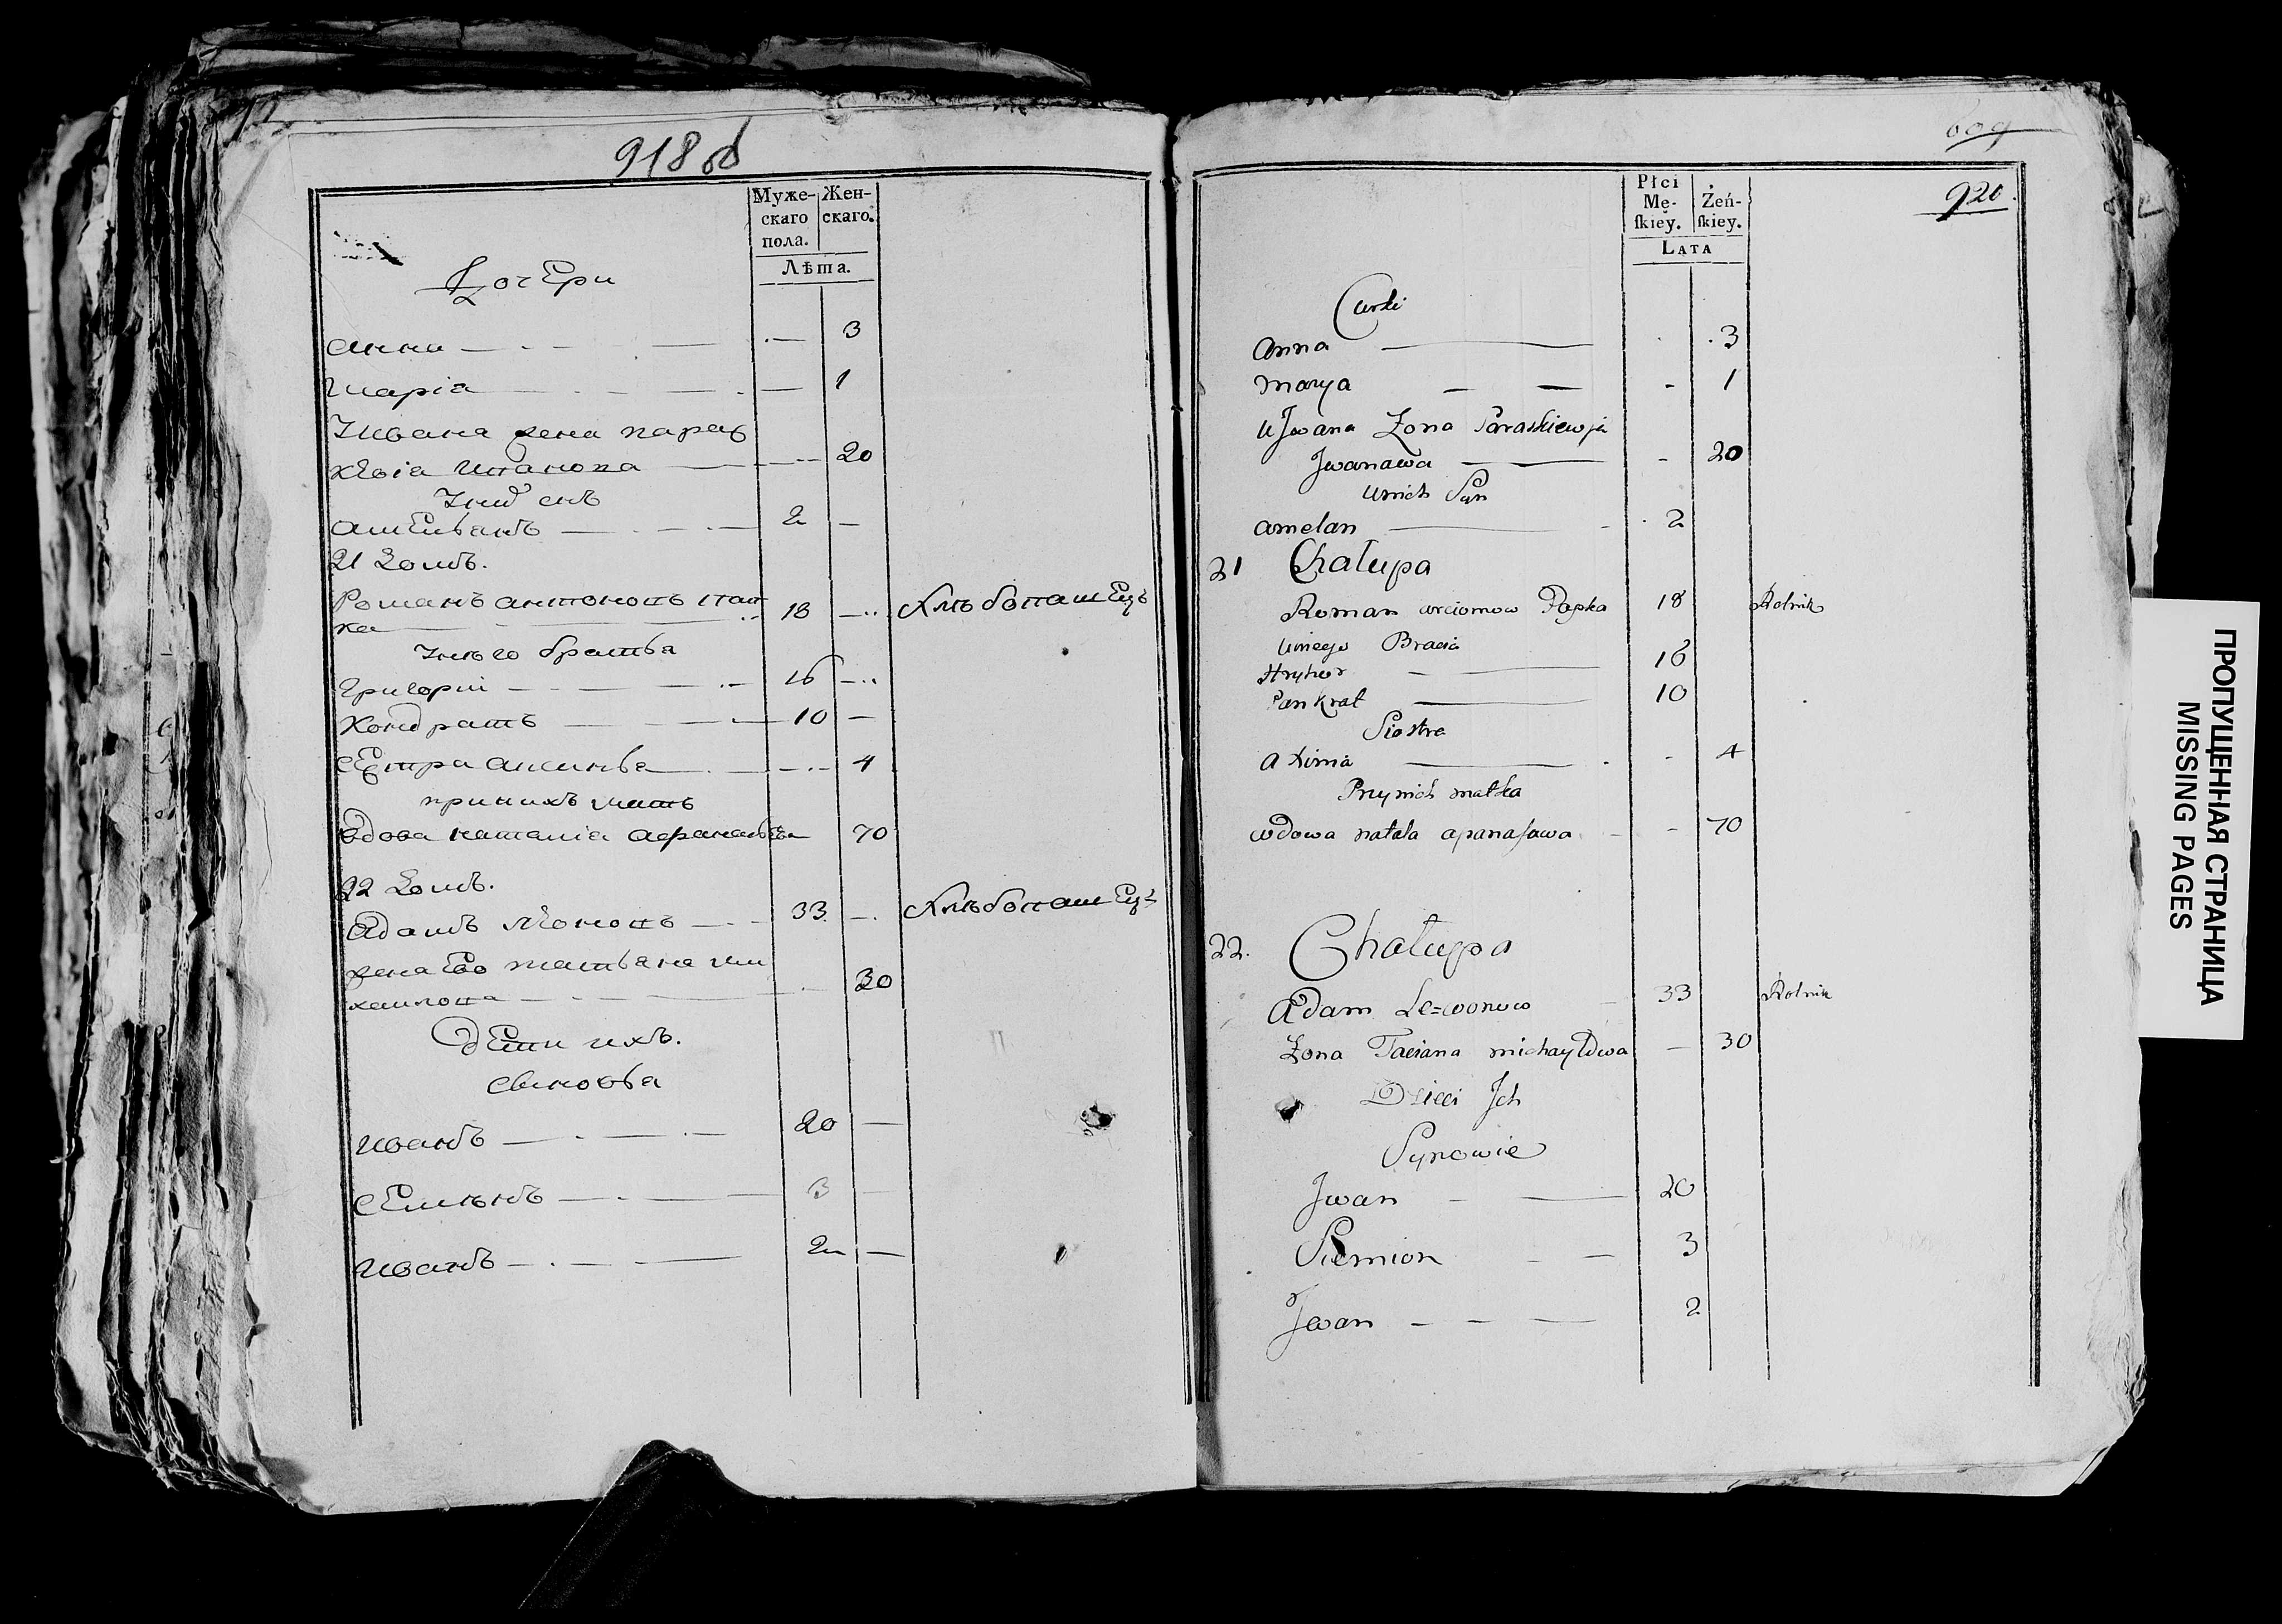 918 об
Муже-
скаго
пола.
Жен-
скаго.
Лѣта.
Дочери
Анна 3
Марія 1
Ивана жена парас
кевія Иванова 20
Емельянъ 2 —
21 Домъ.
Романъ 18 — Хлѣбопашецъ
ка
У него братья
Григорій 16 —
Кондратъ 10 —
сестра Аксинья 4
при нихъ мать
вдова наталіа афанасьева 70
22 Домъ.
Адамъ 33 — Хлѣбопашецъ
жена Его татьяна ми
хайлова 30
дети ихъ.
сыновья
Иванъ 20 —
Семіонъ 3 —
Иванъ 2 —
609
920.
Płci
Mę-
skiey.
Żeń-
skiey.
LATA
Curki
Anna 3
Marya 1
U Jwana Żona Paraskiewja
Jwanawa 20
Unich Syn
Amelan 2
21 Chałupa
Roman arciomow Papka 18 Rolnik
Uniego Bracia
Hryhor 16
Pankrat 10
Siostra
Axima 4
Przynich matka
wdowa natala apanasawa 70
22. Chałupa
Adam Le=wonow 33 Rolnik
Żona Taciana michayłowa 30
Dzieci Jch
Synowie
Jwan 20
Siemion 3
Jwan 2
ПРОПУЩЕННАЯ СТРАНИЦА
MISSING PAGES